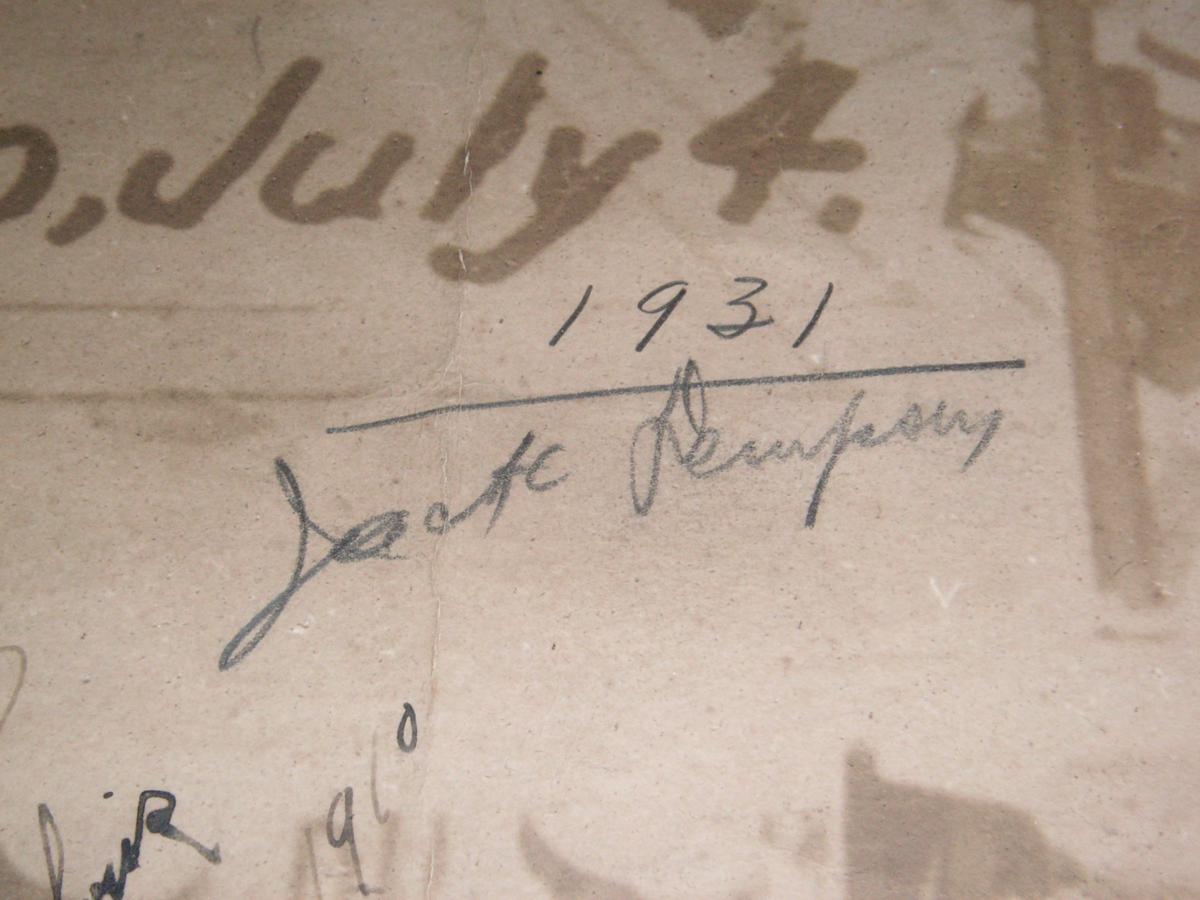 o, July 4.
1931
Jack Dempsey
1910